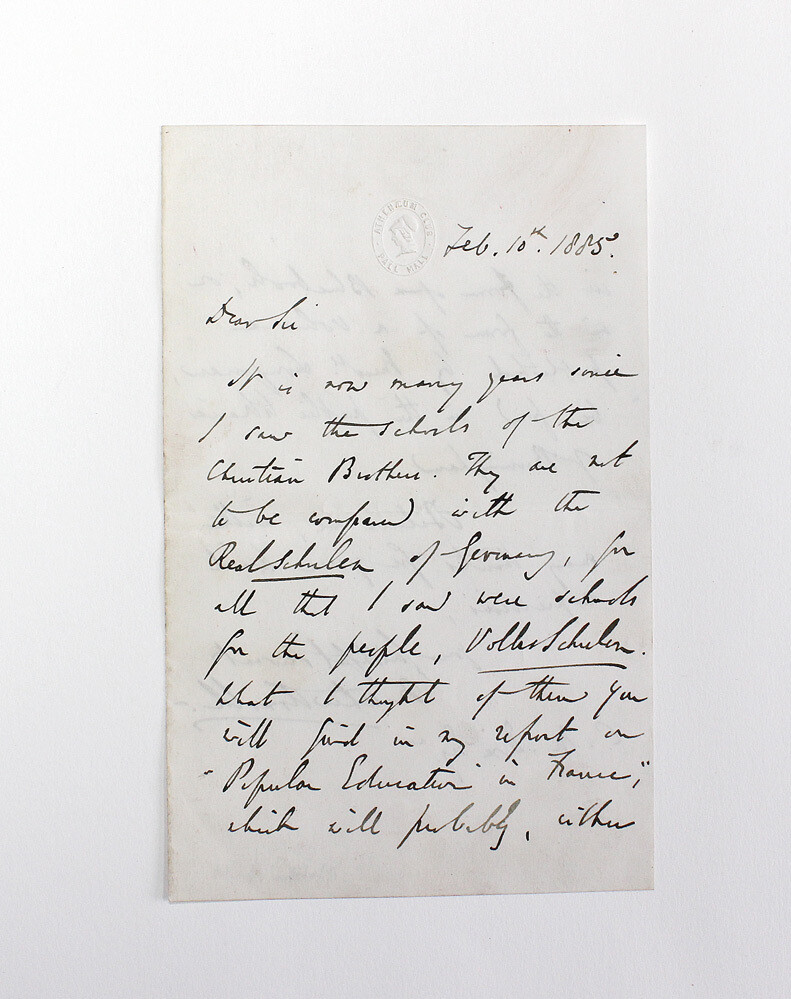 ATHENÆUM CLUB
PALL MALL
Feb. 10th. 1885.
Dear Sir
It is now many years since
I saw the schools of the
Christian Brothers. They are not
to be compared with the
Realschulen of Germany, for
all that I saw were schools
for the people, VolksSchulen.
What I thought of them you
will find in my report on
"Popular Education in France,"
which will probably, either